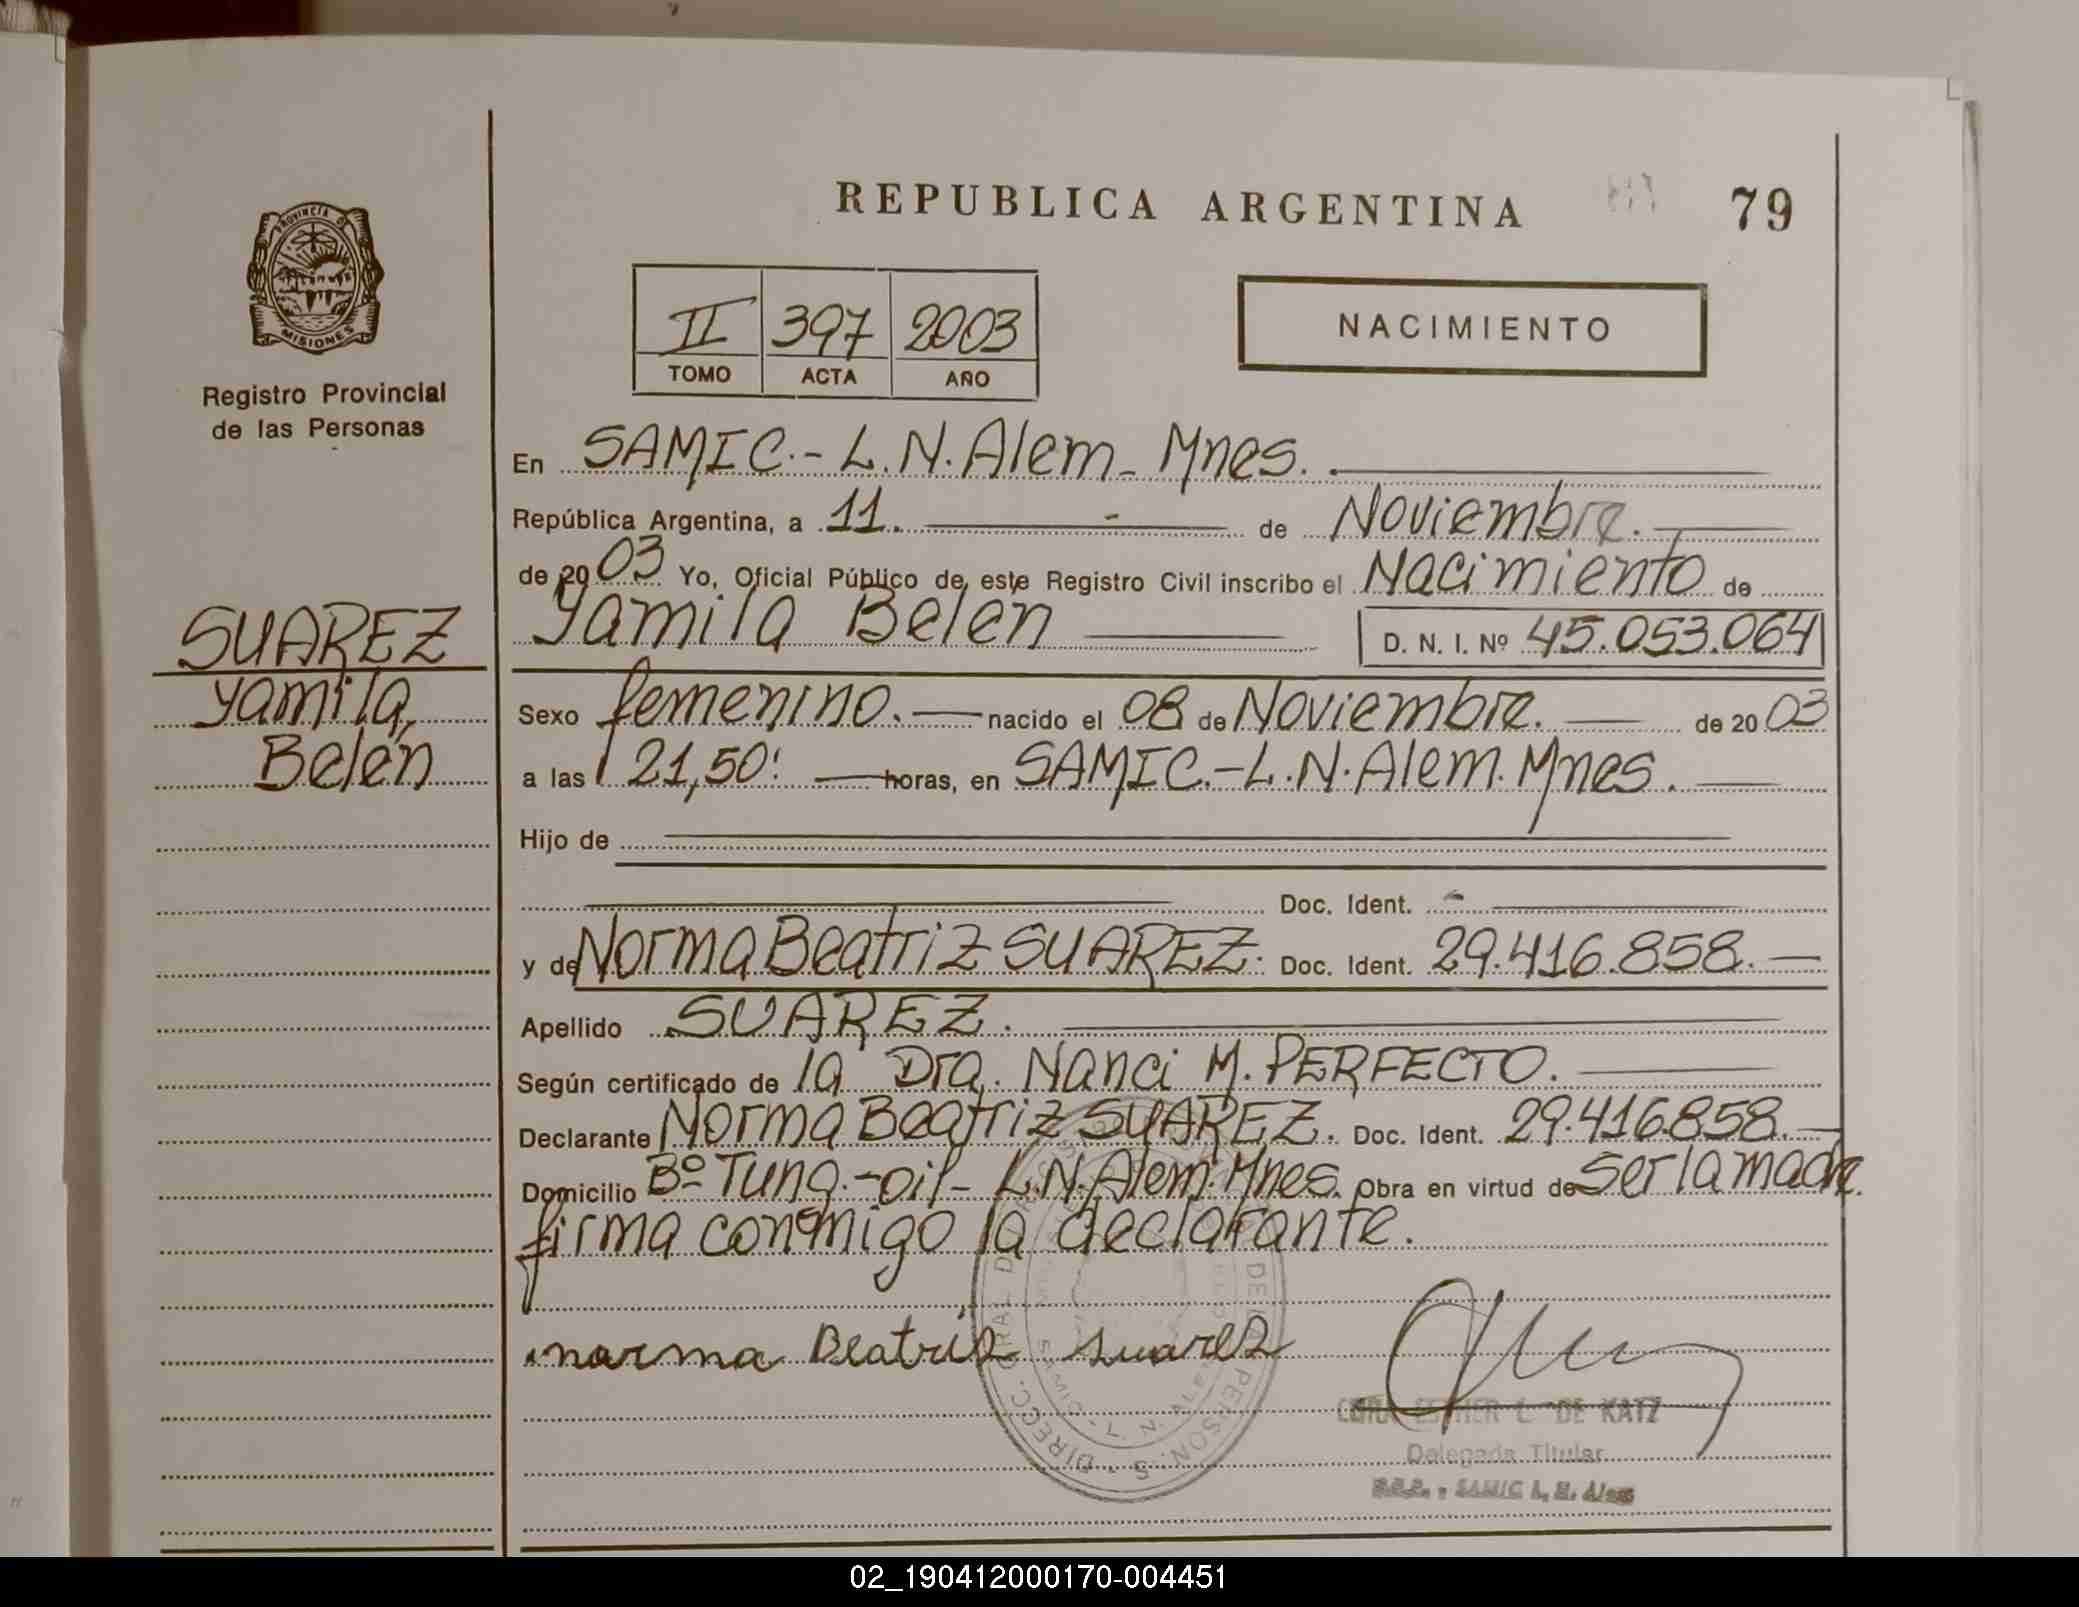 REPUBLICA ARGENTINA
79
PROVINCIA DE
MISIONES
Registro Provincial
de las Personas
II 397 2003
TOMO ACTA AÑO
NACIMIENTO
En SAMIC.- L.N. Alem - Mnes.
República Argentina, a 11. de Noviembre.
de 2003 Yo, Oficial Público de este Registro Civil inscribo el Nacimiento de
Yamila Belén D. N. I. Nº 45.053.064
SUAREZ
Yamila,
Belén
Sexo femenino. nacido el 08 de Noviembre. de 2003
a las 21,50' horas, en SAMIC.-L.N. Alem. Mnes.
Hijo de
Doc. Ident. -
y de Norma Beatriz SUAREZ. Doc. Ident. 29.416.858.
Apellido SUAREZ.
Según certificado de la Dra. Nanci M. PERFECTO.
Declarante Norma Beatriz SUAREZ. Doc. Ident. 29.416.858.
Domicilio Bº Tung.-oil- L.N. Alem. Mnes. Obra en virtud de ser la madre.
firma conmigo la declarante.
norma Beatriz Suarez
ESTHER C. DE KATZ
Delegada Titular
R.P.P. - SAMIC L. N. Alem
02_190412000170-004451